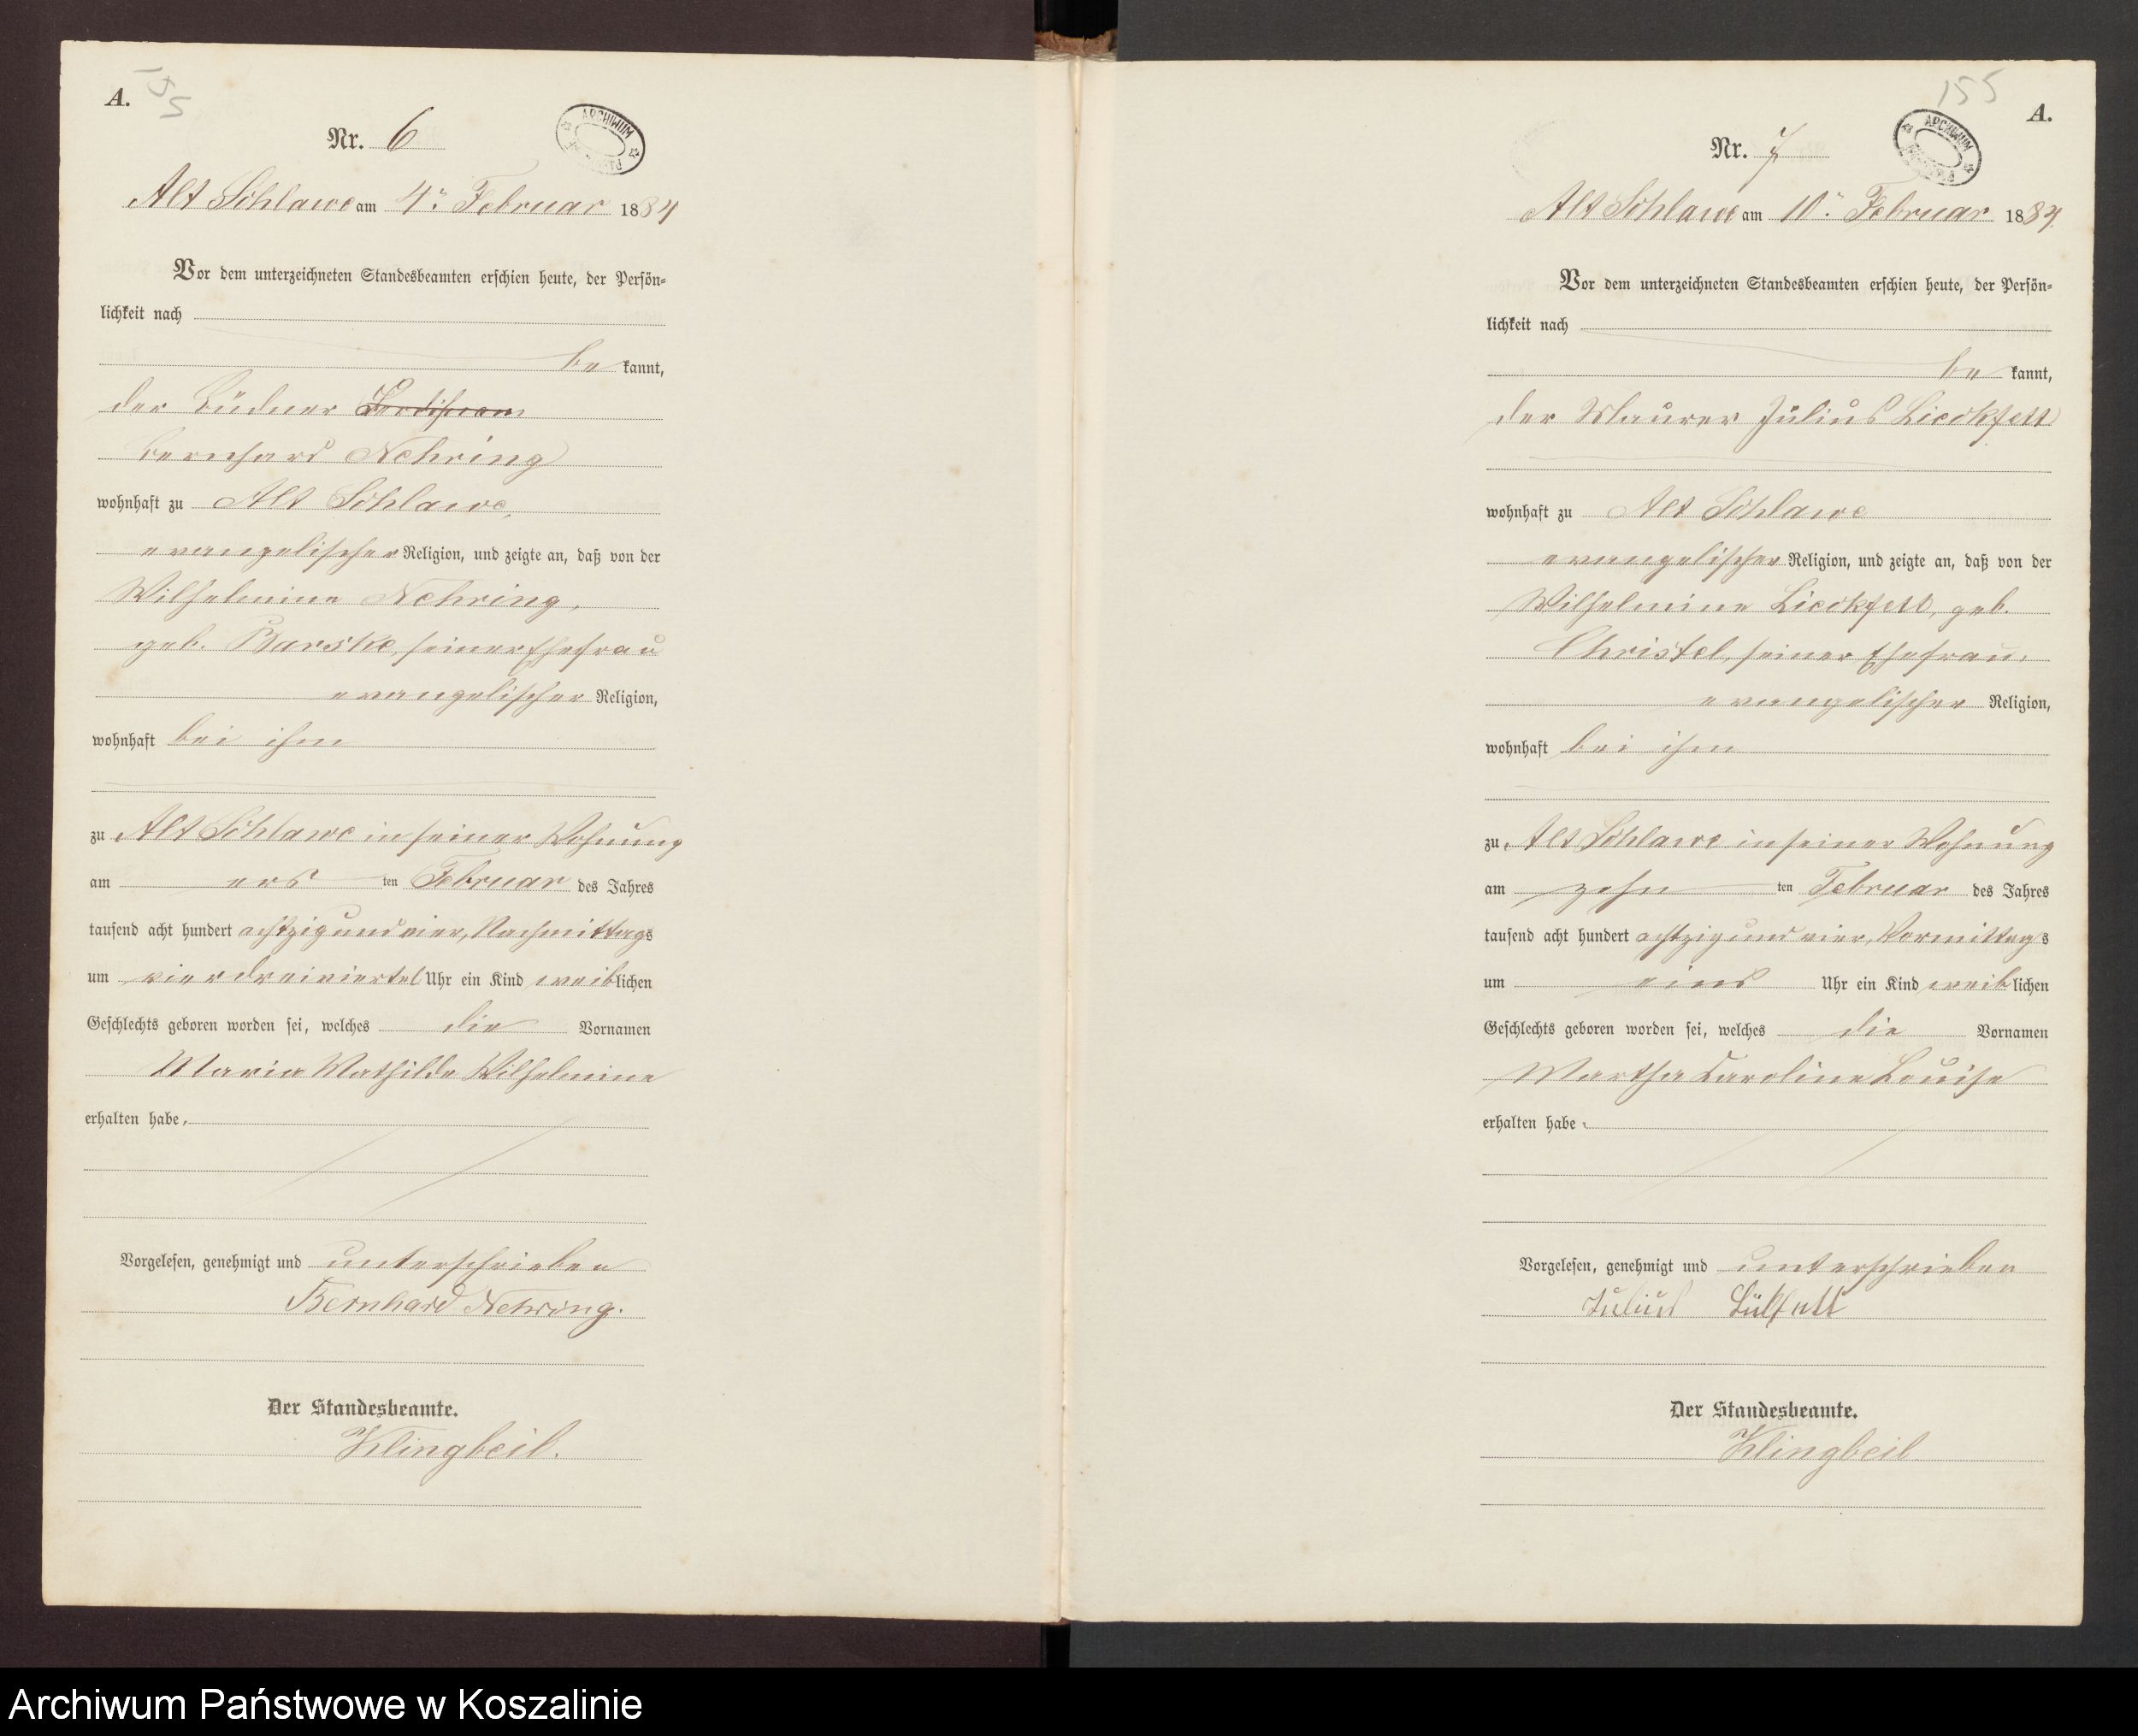 A.
155
Nr. 6
ARCHIWUM
Alt Schlawe am 4ten Februar 1884
Vor dem unterzeichneten Standesbeamten erschien heute, der Persön-
lichkeit nach
be kannt,
der Büdner
Bernhard Nehring
wohnhaft zu Alt Schlawe,
evangelischer Religion, und zeigte an, daß von der
Wilhelmine Nehring,
geb. Barske, seiner Ehefrau
evangelischer Religion,
wohnhaft bei ihm
zu Alt Schlawe in seiner Wohnung
am ers ten Februar des Jahres
tausend acht hundert achtzig und vier, Nachmittags
um vier dreiviertel Uhr ein Kind weiblichen
Geschlechts geboren worden sei, welches die Vornamen
Maria Mathilde Wilhelmine
erhalten habe.
Vorgelesen, genehmigt und unterschrieben
Bernhard Nehring.
Der Standesbeamte.
Klingbeil.
155
A.
Nr. 7
ARCHIWUM
Alt Schlawe am 10. Februar 1884.
Vor dem unterzeichneten Standesbeamten erschien heute, der Persön-
lichkeit nach
be kannt,
der Maurer Julius Lickfett
wohnhaft zu Alt Schlawe
evangelischer Religion, und zeigte an, daß von der
Wilhelmine Lickfett, geb.
Christel, seiner Ehefrau,
evangelischer Religion,
wohnhaft bei ihm
zu Alt Schlawe in seiner Wohnung
am zehn ten Februar des Jahres
tausend acht hundert achtzig und vier, Vormittags
um eins Uhr ein Kind weiblichen
Geschlechts geboren worden sei, welches die Vornamen
Martha Caroline Louise
erhalten habe.
Vorgelesen, genehmigt und unterschrieben
Julius
Der Standesbeamte.
Klingbeil
Archiwum Państwowe w Koszalinie